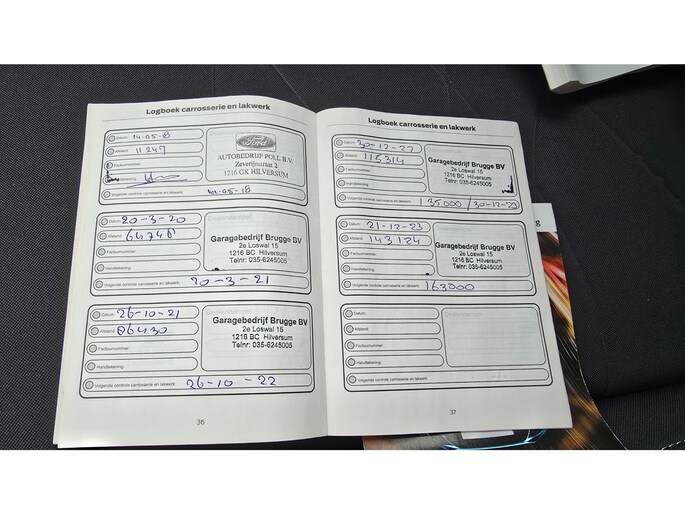 Logboek carrosserie en lakwerk
Datum: 14-05-18
Afstand: 11247
Factuurnummer:
Handtekening:
Ford
AUTOBEDRIJF POLL B.V.
Zeverijnstraat 2
1216 GK HILVERSUM
Volgende controle carrosserie en lakwerk: -05-18
Datum: 20-3-20
Afstand: 64748
Factuurnummer:
Handtekening:
Garagebedrijf Brugge BV
2e Loswal 15
1216 BC Hilversum
Telnr: 035-6245005
Volgende controle carrosserie en lakwerk: 20-3-21
Datum: 26-10-21
Afstand: 86430
Factuurnummer:
Handtekening:
Garagebedrijf Brugge BV
2e Loswal 15
1216 BC Hilversum
Telnr: 035-6245005
Volgende controle carrosserie en lakwerk: 26-10-22
36
Logboek carrosserie en lakwerk
Datum: 30-12-22
Afstand: 115314
Factuurnummer:
Handtekening:
Garagebedrijf Brugge BV
2e Loswal 15
1216 BC Hilversum
Telnr: 035-6245005
Volgende controle carrosserie en lakwerk: 135.000 / 30-12-23
Datum: 21-12-23
Afstand: 143124
Factuurnummer:
Handtekening:
Garagebedrijf Brugge BV
2e Loswal 15
1216 BC Hilversum
Telnr: 035-6245005
Volgende controle carrosserie en lakwerk: 163000
Datum:
Afstand:
Factuurnummer:
Handtekening:
Dealerstempel
Volgende controle carrosserie en lakwerk:
37